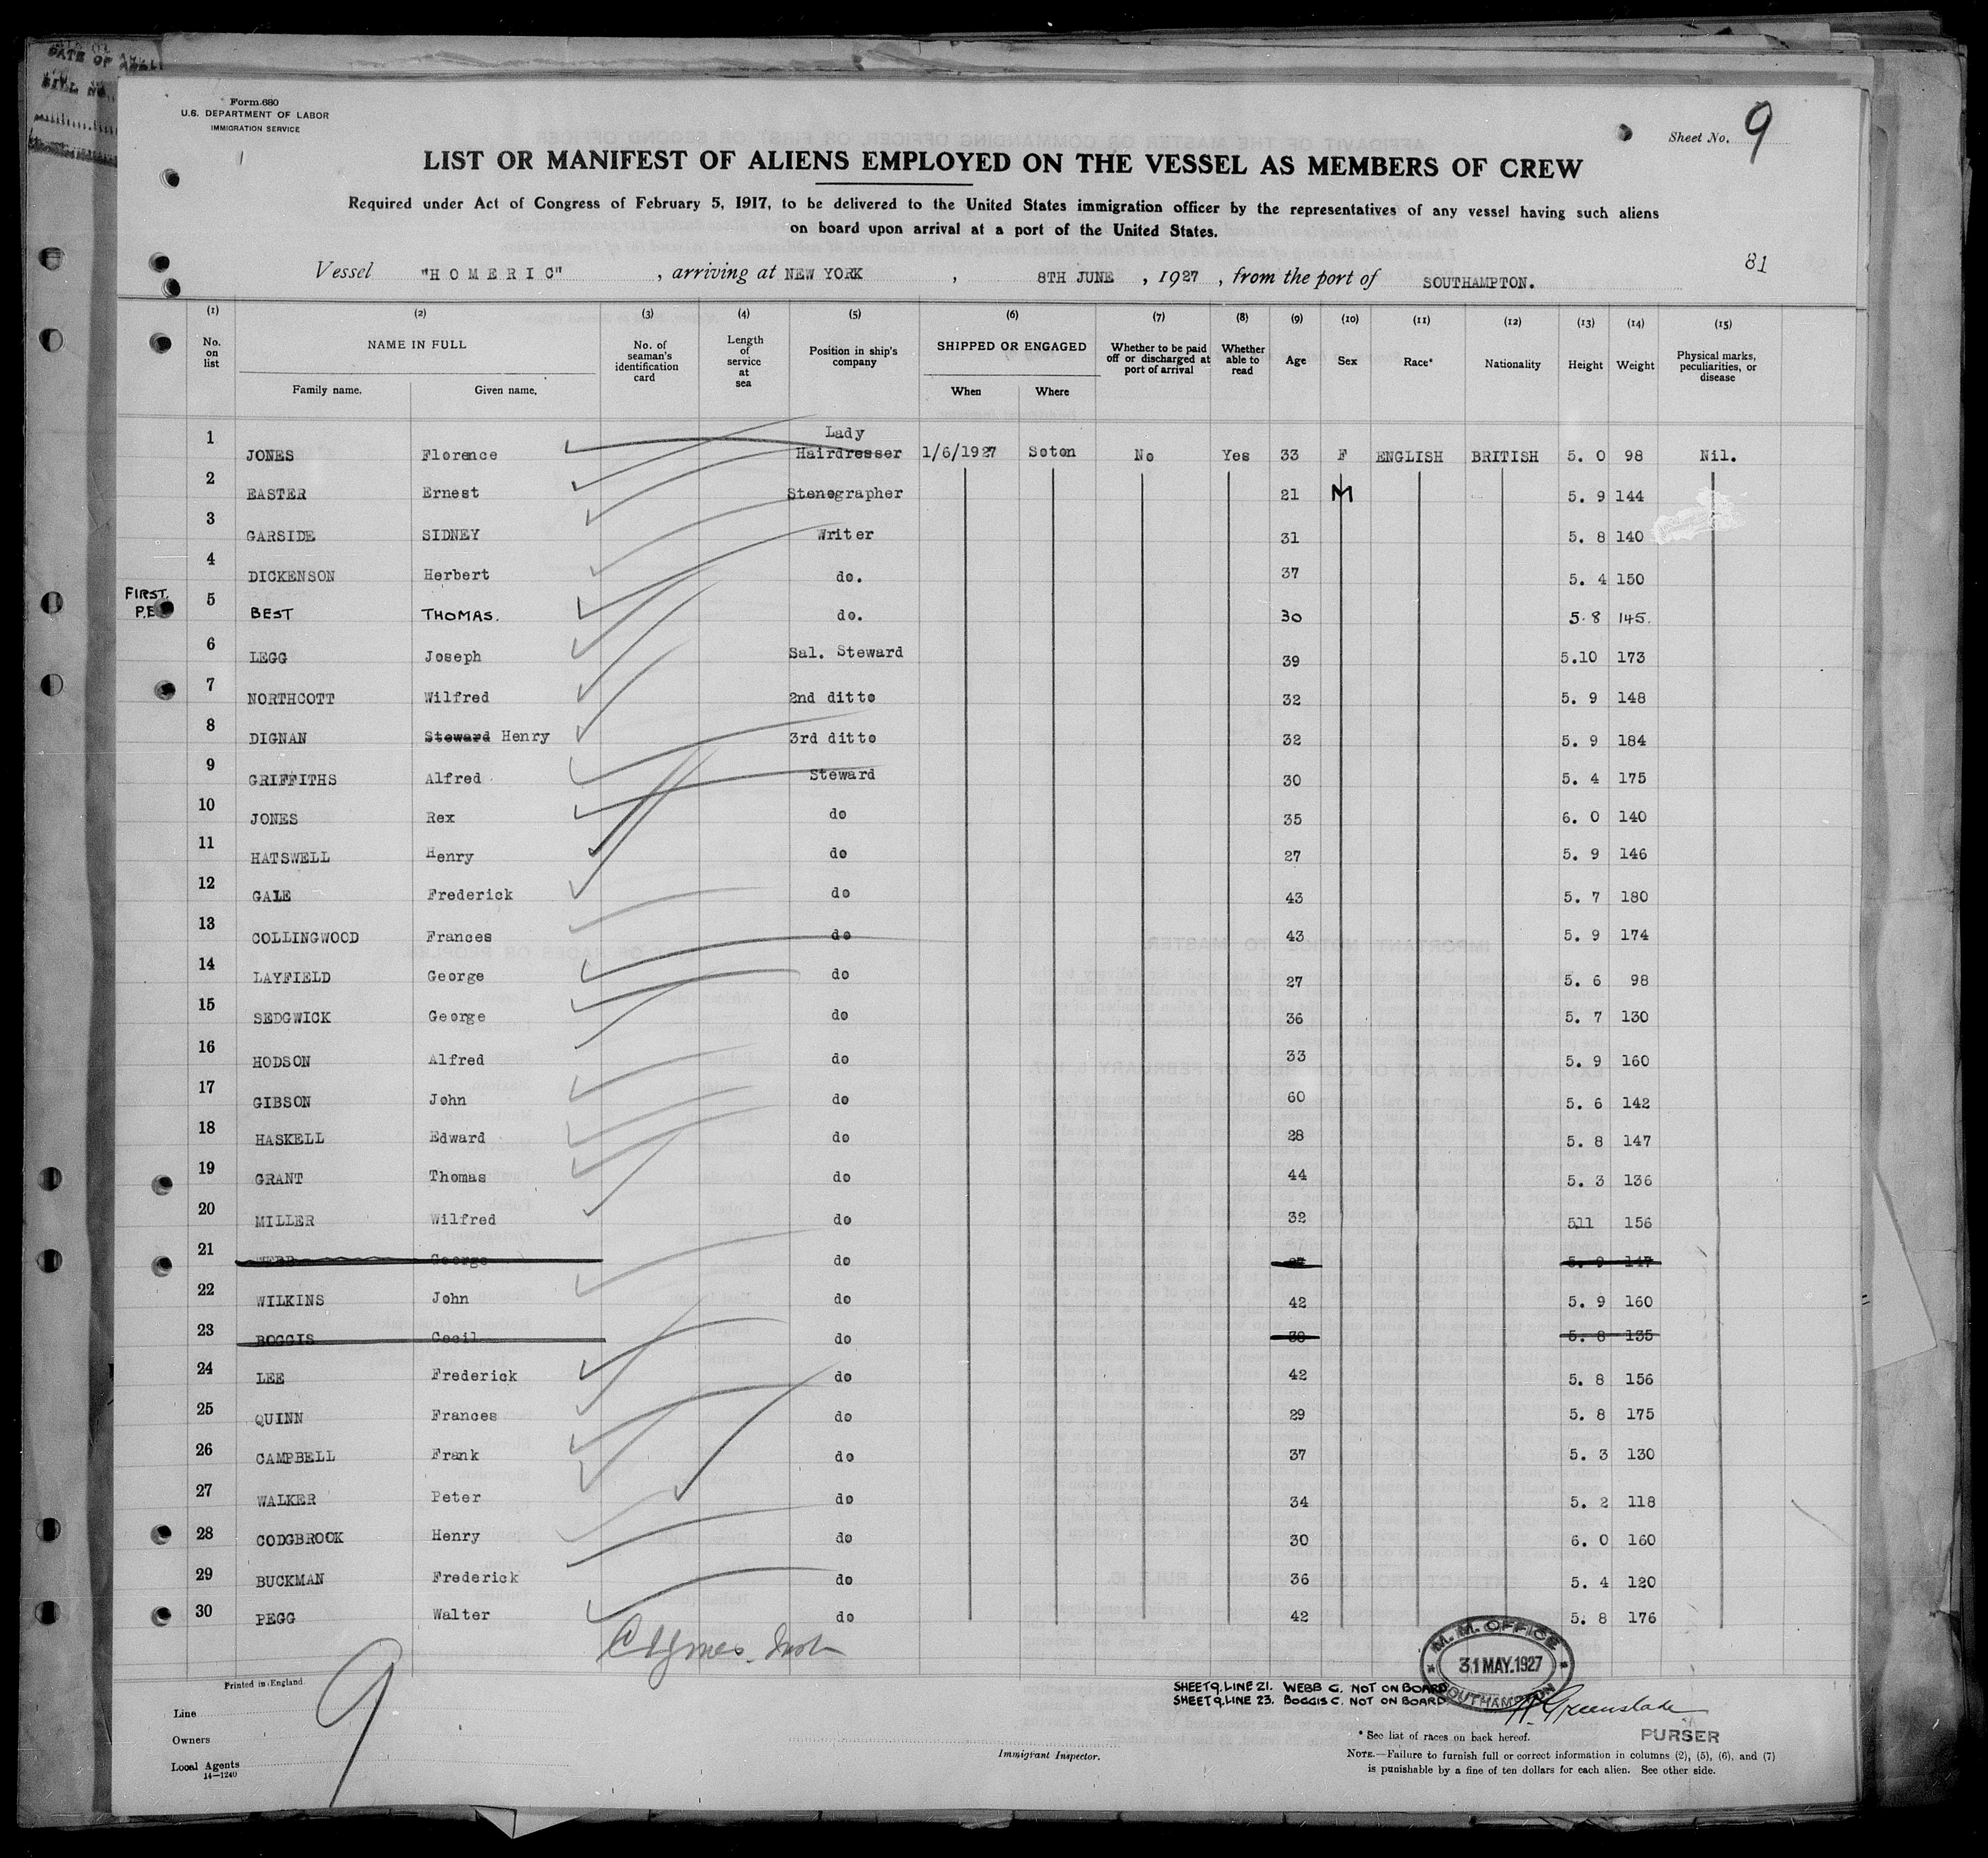 DATE OF
Form 680
U.S. DEPARTMENT OF LABOR
IMMIGRATION SERVICE
Sheet No. 9
LIST OR MANIFEST OF ALIENS EMPLOYED ON THE VESSEL AS MEMBERS OF CREW
Required under Act of Congress of February 5, 1917, to be delivered to the United States immigration officer by the representatives of any vessel having such aliens
on board upon arrival at a port of the United States.
81
Vessel "HOMERIC", arriving at NEW YORK, 8TH JUNE, 1927, from the port of SOUTHAMPTON.
(1) (2) (3) (4) (5) (6) (7) (8) (9) (10) (11) (12) (13) (14) (15)
No. on list NAME IN FULL Family name. Given name. No. of seaman's identification card Length of service at sea Position in ship's company SHIPPED OR ENGAGED When Where Whether to be paid off or discharged at port of arrival Whether able to read Age Sex Race* Nationality Height Weight Physical marks, peculiarities, or disease
1 JONES Florence Lady Hairdresser 1/6/1927 Soton No Yes 33 F ENGLISH BRITISH 5. 0 98 Nil.
2 EASTER Ernest Stenographer 21 M 5. 9 144
3 GARSIDE SIDNEY Writer 31 5. 8 140
4 DICKENSON Herbert do. 37 5. 4 150
FIRST. P.E 5 BEST THOMAS. do. 30 5.8 145.
6 LEGG Joseph Sal. Steward 39 5.10 173
7 NORTHCOTT Wilfred 2nd ditto 32 5. 9 148
8 DIGNAN Steward Henry 3rd ditto 32 5. 9 184
9 GRIFFITHS Alfred Steward 30 5. 4 175
10 JONES Rex do 35 6. 0 140
11 HATSWELL Henry do 27 5. 9 146
12 GALE Frederick do 43 5. 7 180
13 COLLINGWOOD Frances do 43 5. 9 174
14 LAYFIELD George do 27 5. 6 98
15 SEDGWICK George do 36 5. 7 130
16 HODSON Alfred do 33 5. 9 160
17 GIBSON John do 60 5. 6 142
18 HASKELL Edward do 28 5. 8 147
19 GRANT Thomas do 44 5. 3 136
20 MILLER Wilfred do 32 511 156
21 WEBB George do 5. 9 147
22 WILKINS John do 42 5. 9 160
23 BOGGIS Cecil do 38 5. 8 135
24 LEE Frederick do 42 5. 8 156
25 QUINN Frances do 29 5. 8 175
26 CAMPBELL Frank do 37 5. 3 130
27 WALKER Peter do 34 5. 2 118
28 CODGBROOK Henry do 30 6. 0 160
29 BUCKMAN Frederick do 36 5. 4 120
30 PEGG Walter do 42 5. 8 176
M.M. OFFICE
31 MAY.1927
SOUTHAMPTON
Printed in England.
9
SHEET 9. LINE 21. WEBB G. NOT ON BOARD
SHEET 9. LINE 23. BOGGIS C. NOT ON BOARD
Greenslade
PURSER
Line
Owners
Local Agents
14—1240
Immigrant Inspector.
* See list of races on back hereof.
NOTE.—Failure to furnish full or correct information in columns (2), (5), (6), and (7)
is punishable by a fine of ten dollars for each alien. See other side.